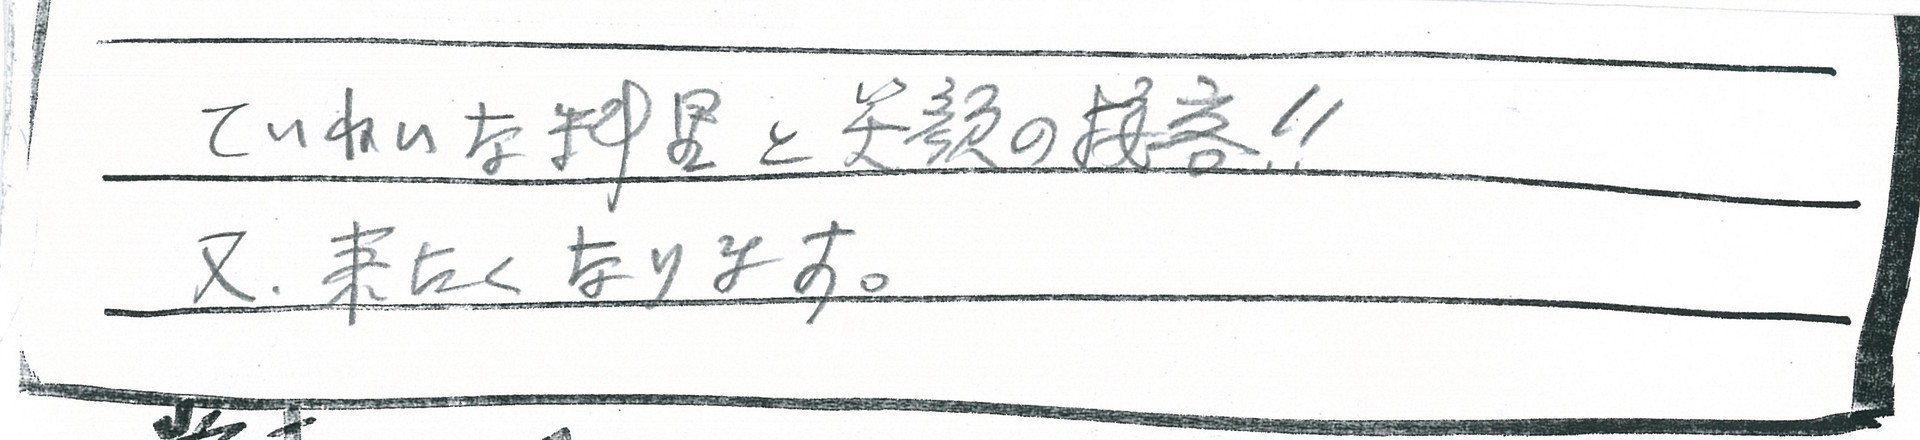 ていねいな料理と笑顔の接客!!
又、来たくなります。